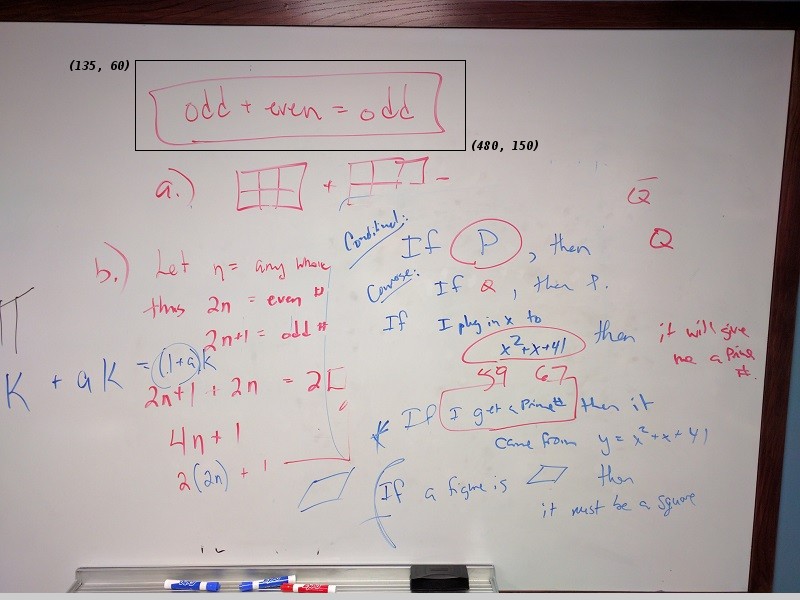 (135, 60)
odd + even = odd
(480, 150)
a.)
+
Q
Conditional:
If P, then
Q
b.) Let n = any whole
thus 2n = even #
2n+1 = odd #
Converse:
If Q, then P.
If I plug in x to
x²+x+41 then it will give
me a Prime
#.
59 67
K + aK = (1+a)K
2n+1 + 2n = 2
4n+1
2(2n) + 1
* If I get a Prime # then it
came from y = x²+x+41
If a figure is then
it must be a square